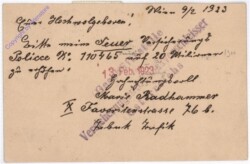 Wien 9/2 1923
Euer Hochwolgeboren!
Bitte meine Feuer Versicherungs
Polizze No. 110465 auf 20 Millionen
zu erhöhen.
13. Feb. 1923
Hochachtungsvoll
Marie Radhammer
X Favoritenstrasse 76 b.
Tabak Trafik